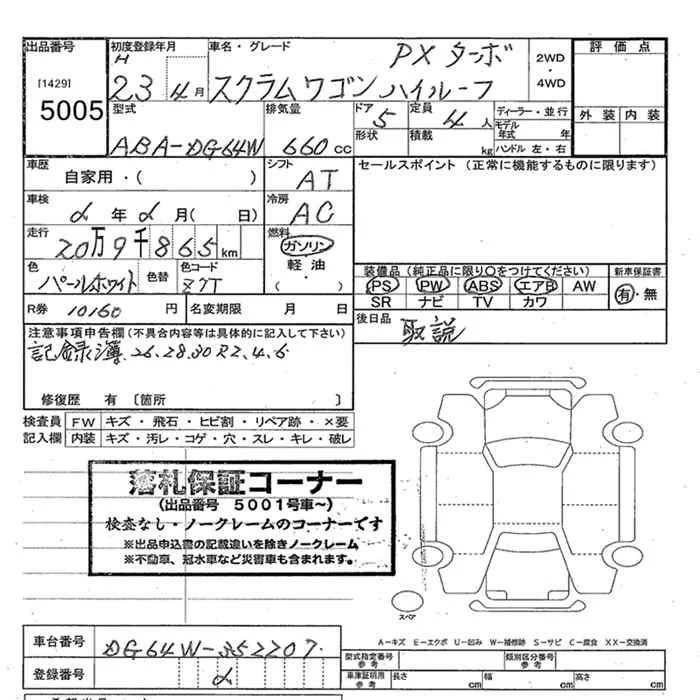 出品番号 初度登録年月 車名・グレード PXターボ 2WD 評価点
[1429] H ・
5005 23 4月 スクラムワゴン ハイルーフ 4WD
型式 排気量 ドア 5 定員 4人 ディーラー・並行 外装 内装
ABA-DG64W 660cc 形状 積載 kg モデル年式 年
ハンドル 左・右
車歴 シフト セールスポイント (正常に機能するものに限ります)
自家用・( ) AT
車検 年 月( 日) 冷房 AC
走行 20万9千865km 燃料 ガソリン
軽・油
( )
色 パールホワイト 色替 色コード Z7T
装備品 (純正品に限り○をつけてください) 新車保証書
PS PW ABS エアB AW 有・無
SR ナビ TV カワ
R券 10160 円 名変期限 月 日
後日品 取説
注意事項申告欄(不具合内容等は具体的に記入して下さい)
記録簿 26.28.30 R2.4.6
修復歴 有 〔箇所 〕
検査員 FW キズ・飛石・ヒビ割・リペア跡・×要
記入欄 内装 キズ・汚レ・コゲ・穴・スレ・キレ・破レ
落札保証コーナー
(出品番号 5001号車~)
検査なし・ノークレームのコーナーです
※出品申込書の記載違いを除きノークレーム
※不動車、冠水車など災害車も含まれます。
スペア
A-キズ E-エクボ U-凹み W-補修跡 S-サビ C-腐食 XX-交換済
車台番号 DG64W-352207
型式指定番号 参考 類別区分番号 参考
登録番号
車庫証明用 参考 長さ cm 幅 cm 高さ cm